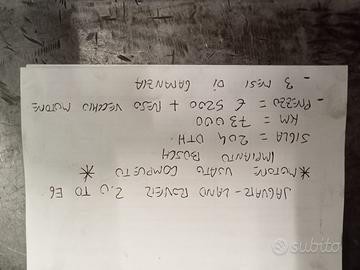 JAGUAR-LAND ROVER 2.0 TD E6
* MOTORE USATO COMPLETO *
IMPIANTO BOSCH
SIGLA = 204 DTH
KM = 73000
- PREZZO = € 5200 + RESO VECCHIO MOTORE
- 3 MESI DI GARANZIA
subito